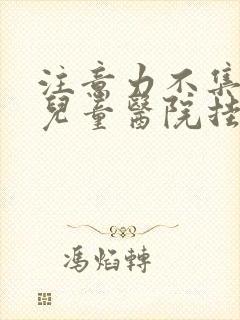 注意力不集
兒童醫院挂
馮焰轉